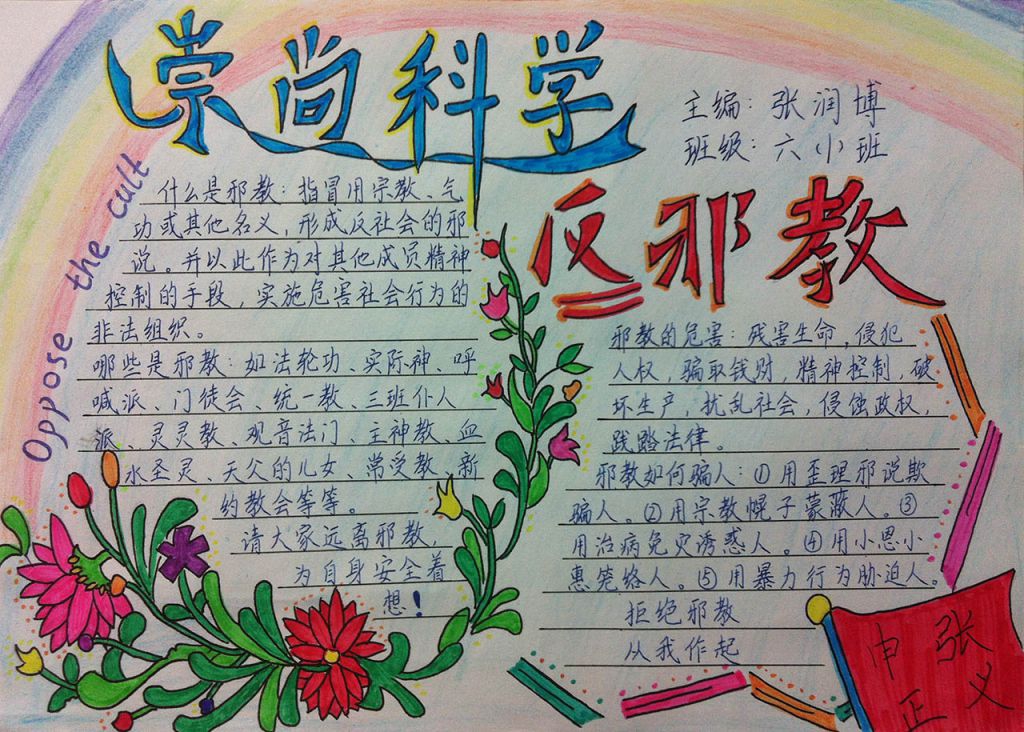 崇尚科学
主编：张润博
班级：六小班
反邪教
Oppose the cult
什么是邪教：指冒用宗教、气
功或其他名义，形成反社会的邪
说。并以此作为对其他成员精神
控制的手段，实施危害社会行为的
非法组织。
哪些是邪教：如法轮功、实际神、呼
喊派、门徒会、统一教、三班仆人
派、灵灵教、观音法门、主神教、血
水圣灵、天父的儿女、常受教、新
约教会等等。
请大家远离邪教，
为自身安全着
想！
邪教的危害：残害生命，侵犯
人权，骗取钱财，精神控制，破
坏生产，扰乱社会，侵蚀政权，
践踏法律。
邪教如何骗人：①用歪理邪说欺
骗人。②用宗教幌子蒙蔽人。③
用治病免灾诱惑人。④用小恩小
惠笼络人。⑤用暴力行为胁迫人。
拒绝邪教
从我作起
申张
正义